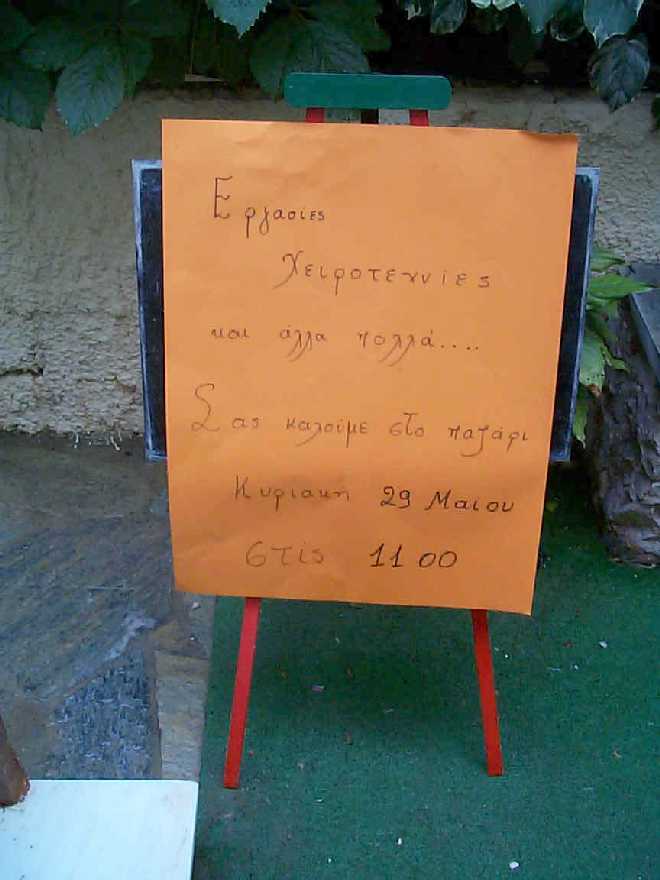 Εργασίες
Χειροτεχνίες
και άλλα πολλά....
Σας καλούμε στο παζάρι
Κυριακη 29 Μαιου
στίς 11 00